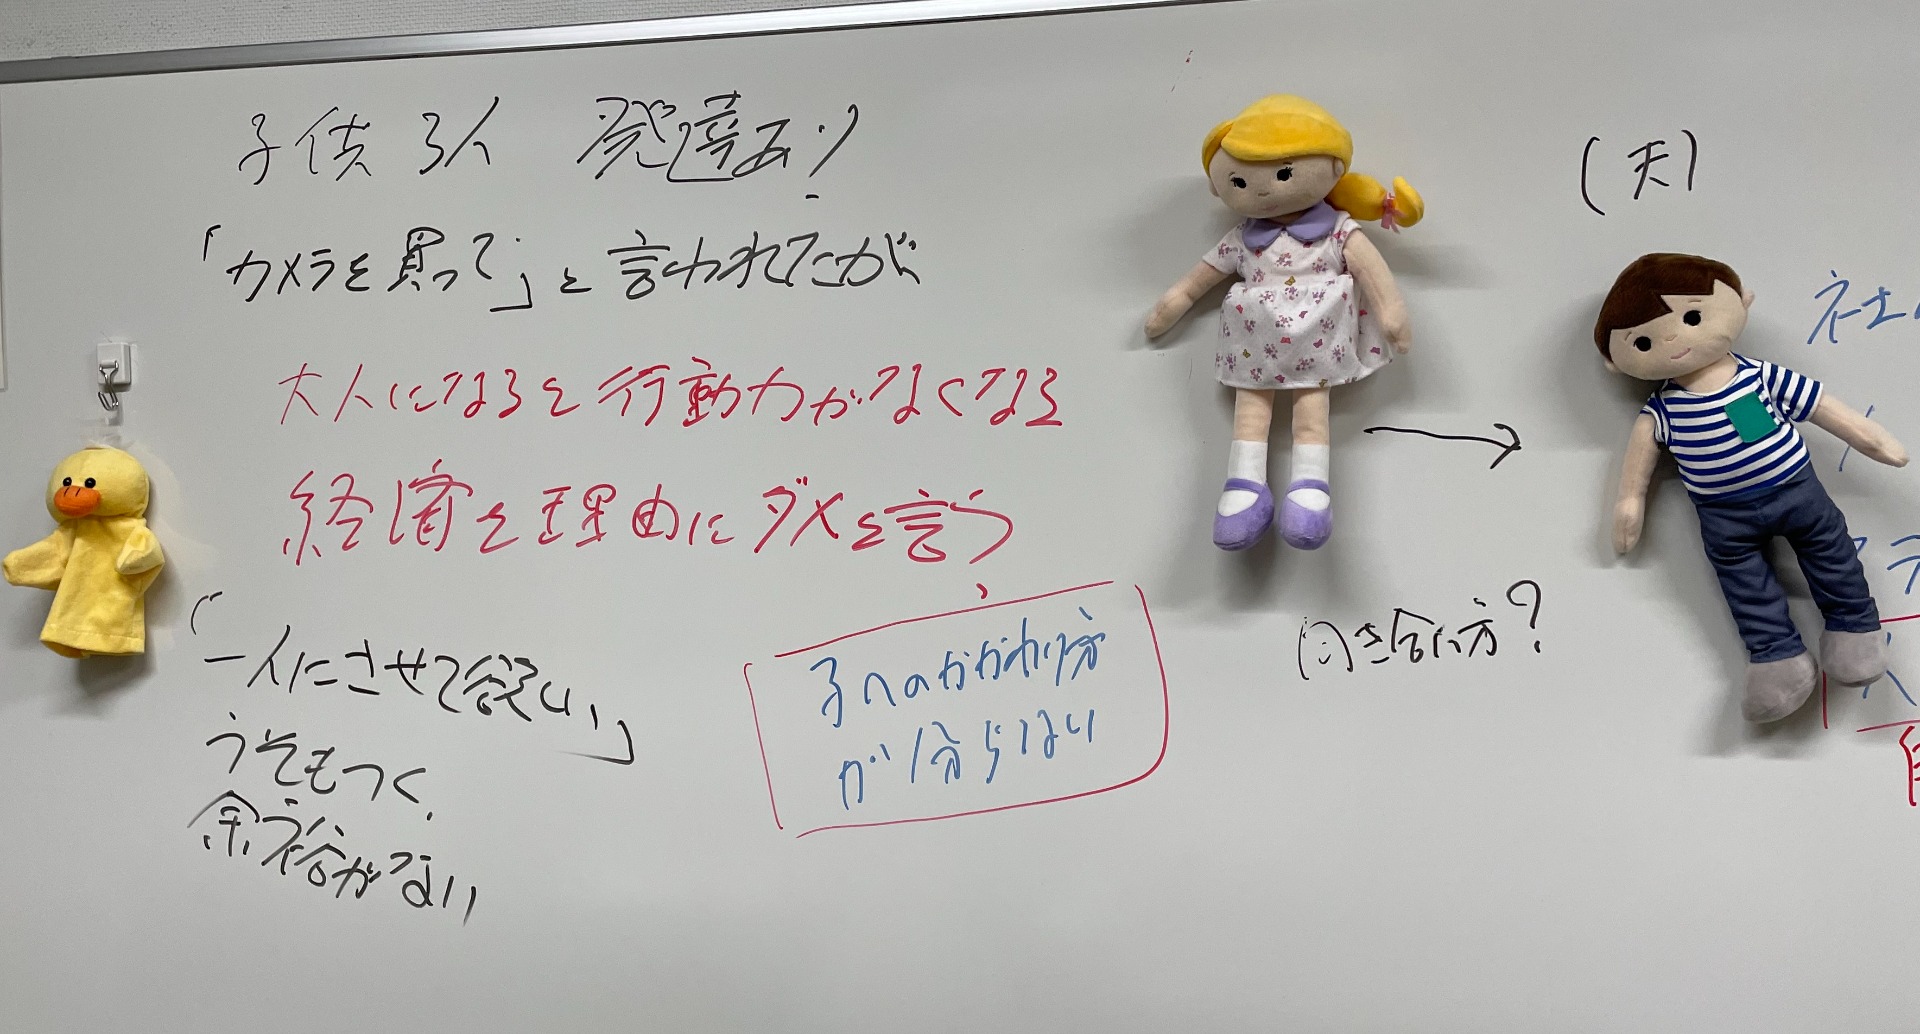 子供3人 発達あり
「カメラを買って」と言われたが
大人になると行動力がなくなる
経済を理由にダメと言う
「一人にさせて欲しい」
うそもつく
余裕がない
子へのかかわり方
が分らない
向き合い方?
(夫)